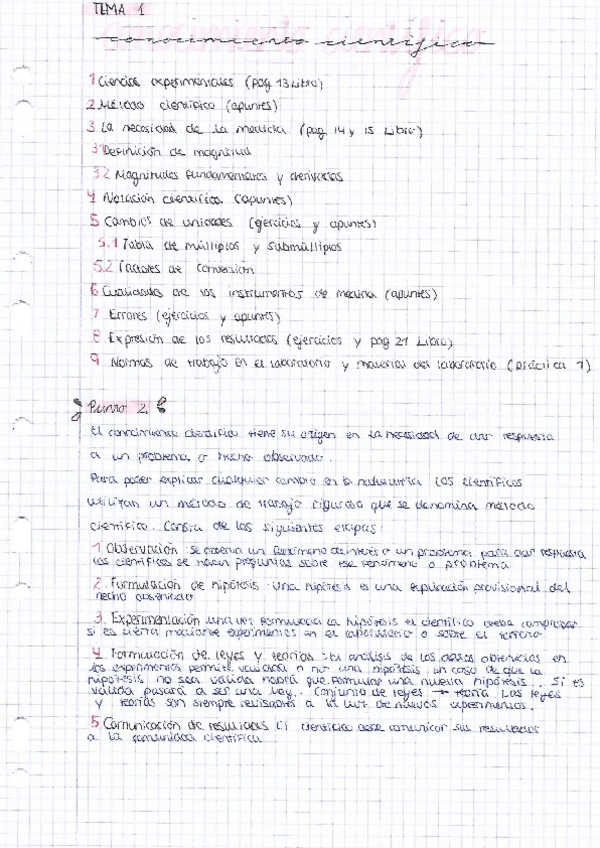 TEMA 1
conocimiento científico
1 Ciencias experimentales (pag 13 Libro)
2 Método científico (apuntes)
3 La necesidad de la medida (pag 14 y 15 Libro)
3.1 Definición de magnitud
3.2 Magnitudes fundamentales y derivadas
4 Notación científica (apuntes)
5 Cambios de unidades (ejercicios y apuntes)
5.1 Tabla de múltiplos y submúltiplos
5.2 Factores de conversión
6 Cualidades de los instrumentos de medida (apuntes)
7 Errores (ejercicios y apuntes)
8 Expresión de los resultados (ejercicios y pag 21 Libro)
9 Normas de trabajo en el laboratorio y material del laboratorio (práctica 1)
Punto 2.
El conocimiento científico tiene su origen en la necesidad de dar respuesta
a un problema o hecho observado.
Para poder explicar cualquier cambio en la naturaleza los científicos
utilizan un método de trabajo riguroso que se denomina método
científico. Consta de las siguientes etapas:
1 Observación: se observa un fenómeno de interés o un problema, para dar respuesta
los científicos se hacen preguntas sobre ese fenómeno o problema
2. Formulación de hipótesis: una hipótesis es una explicación provisional del
hecho observado
3. Experimentación: una vez formulada la hipótesis el científico debe comprobar
si es cierta mediante experimentos en el laboratorio o sobre el terreno
4 Formulación de leyes y teorías: el análisis de los datos obtenidos en
los experimentos permite validar o no una hipótesis. en caso de que la
hipótesis no sea válida habrá que formular una nueva hipótesis. Si es
válida pasará a ser una ley. Conjunto de leyes → teoría. Las leyes
y teorías son siempre revisables a la luz de nuevos experimentos.
5 Comunicación de resultados: El científico debe comunicar sus resultados
a la comunidad científica